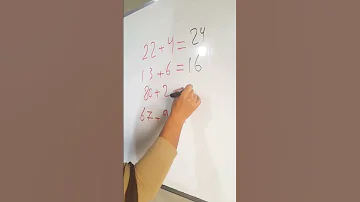 22+4=24
13+6=16
80+2
67-